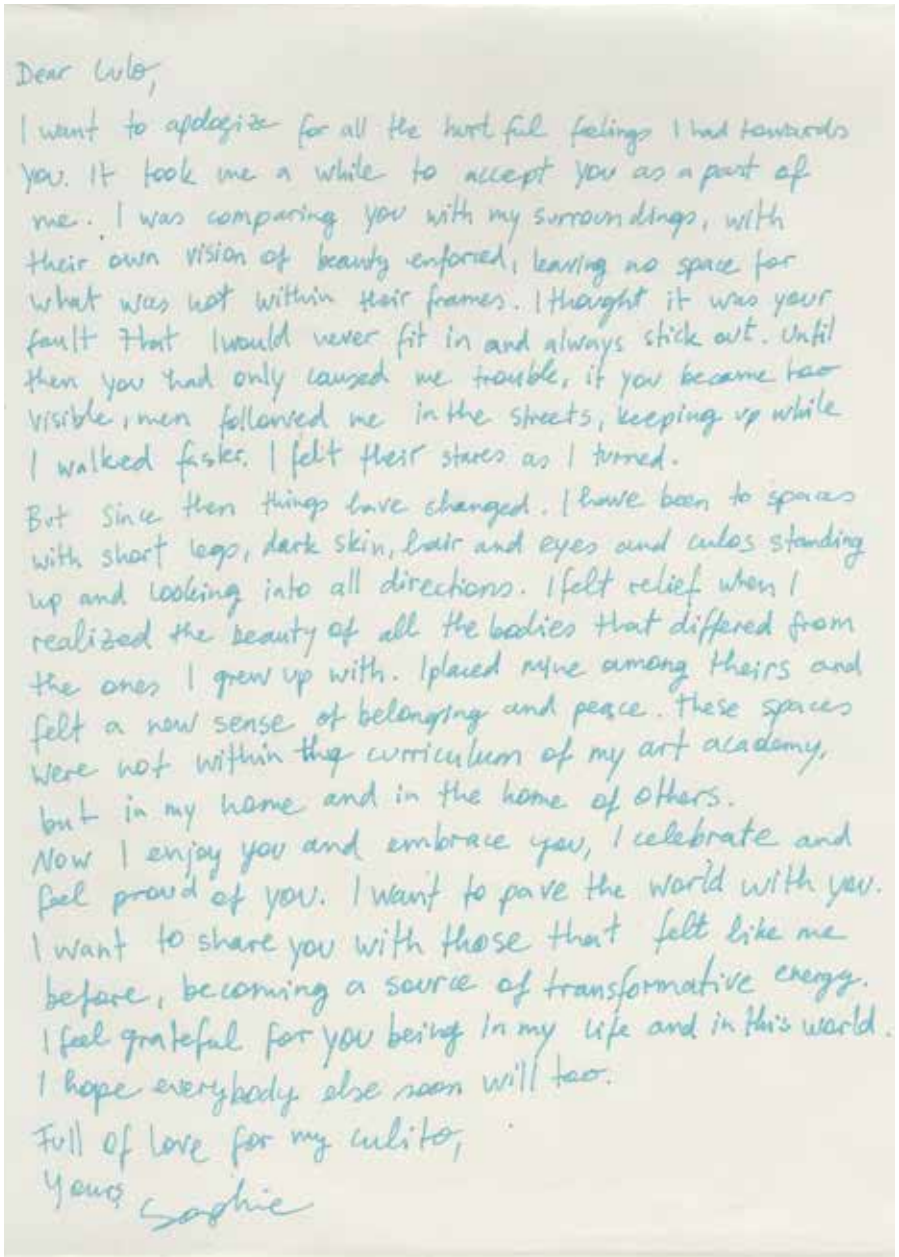 Dear Culo,
I want to apologize for all the hurtful feelings I had towards
you. It took me a while to accept you as a part of
me. I was comparing you with my surroundings, with
their own vision of beauty enforced, leaving no space for
what was not within their frames. I thought it was your
fault that I would never fit in and always stick out. Until
then you had only caused me trouble, if you became too
visible, men followed me in the streets, keeping up while
I walked faster. I felt their stares as I turned.
But since then things have changed. I have been to spaces
with short legs, dark skin, hair and eyes and culos standing
up and looking into all directions. I felt relief when I
realized the beauty of all the bodies that differed from
the ones I grew up with. I placed mine among theirs and
felt a new sense of belonging and peace. These spaces
were not within the curriculum of my art academy,
but in my home and in the home of others.
Now I enjoy you and embrace you, I celebrate and
feel proud of you. I want to pave the world with you.
I want to share you with those that felt like me
before, becoming a source of transformative energy.
I feel grateful for you being in my life and in this world.
I hope everybody else soon will too.
Full of love for my culito,
Yours
Sophie